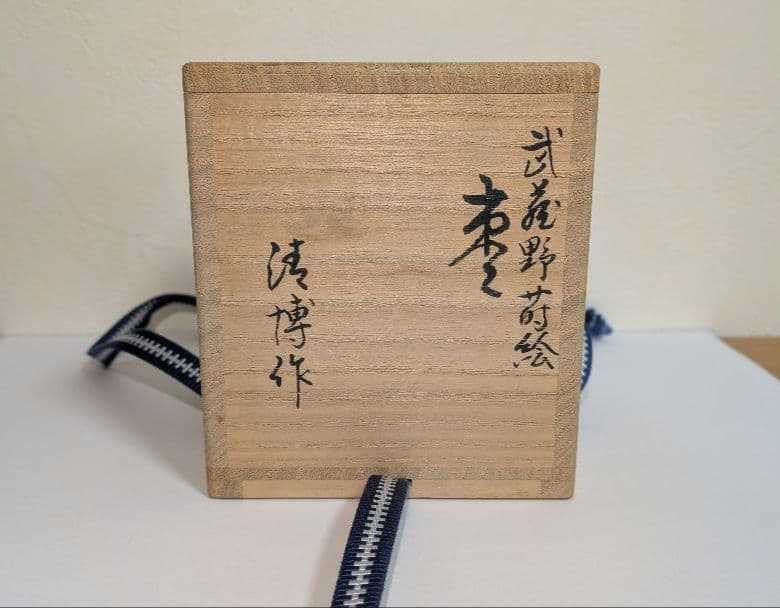 武蔵野蒔絵
棗
清博作